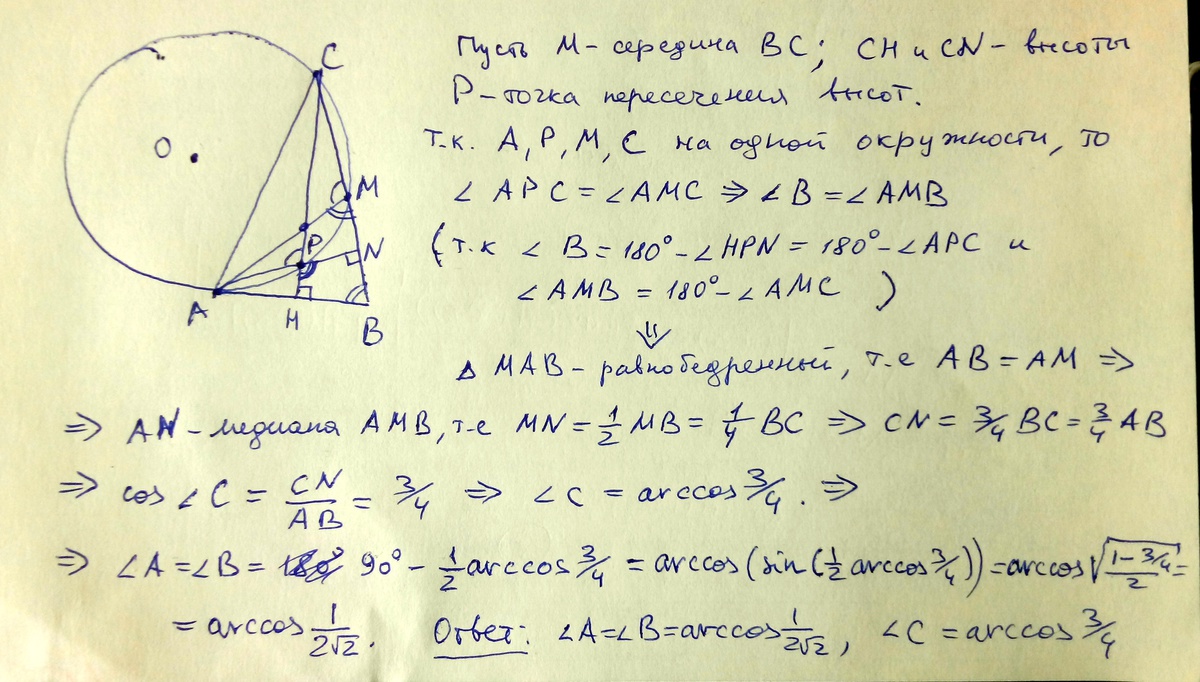 Пусть M - середина BC; CH и CN - высоты
P - точка пересечения высот.
т.к. A, P, M, C на одной окружности, то
∠APC = ∠AMC ⇒ ∠B = ∠AMB
(т.к ∠B = 180° - ∠HPN = 180° - ∠APC и
∠AMB = 180° - ∠AMC)
⇓
△MAB - равнобедренный, т.е AB = AM ⇒
⇒ AN - медиана AMB, т.е MN = 1/2 MB = 1/4 BC ⇒ CN = 3/4 BC = 3/4 AB
⇒ cos∠C = CN/AB = 3/4 ⇒ ∠C = arccos 3/4. ⇒
⇒ ∠A = ∠B = 90° - 1/2 arccos 3/4 = arccos(sin(1/2 arccos 3/4)) = arccos√((1-3/4)/2) =
= arccos 1/(2√2). Ответ: ∠A = ∠B = arccos 1/(2√2), ∠C = arccos 3/4
C
O
M
P
N
A
H
B